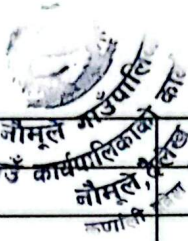 नौमूले गाउँपालि
उँ कार्यपालिकाको का
नौमूले,